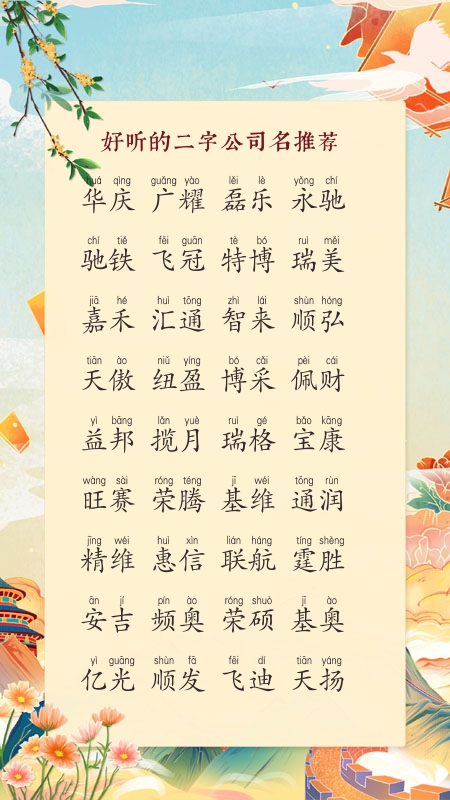 好听的二字公司名推荐
huá qìng guǎng yào lěi lè yǒng chí
华庆 广耀 磊乐 永驰
chí tiě fēi guān tè bó ruì měi
驰铁 飞冠 特博 瑞美
jiā hé huì tōng zhì lái shùn hóng
嘉禾 汇通 智来 顺弘
tiān ào niǔ yíng bó cǎi pèi cái
天傲 纽盈 博采 佩财
yì bāng lǎn yuè ruì gé bǎo kāng
益邦 揽月 瑞格 宝康
wàng sài róng téng jī wéi tōng rùn
旺赛 荣腾 基维 通润
jīng wéi huì xìn lián háng tíng shèng
精维 惠信 联航 霆胜
ān jí pín ào róng shuò jī ào
安吉 频奥 荣硕 基奥
yì guāng shùn fā fēi dí tiān yáng
亿光 顺发 飞迪 天扬